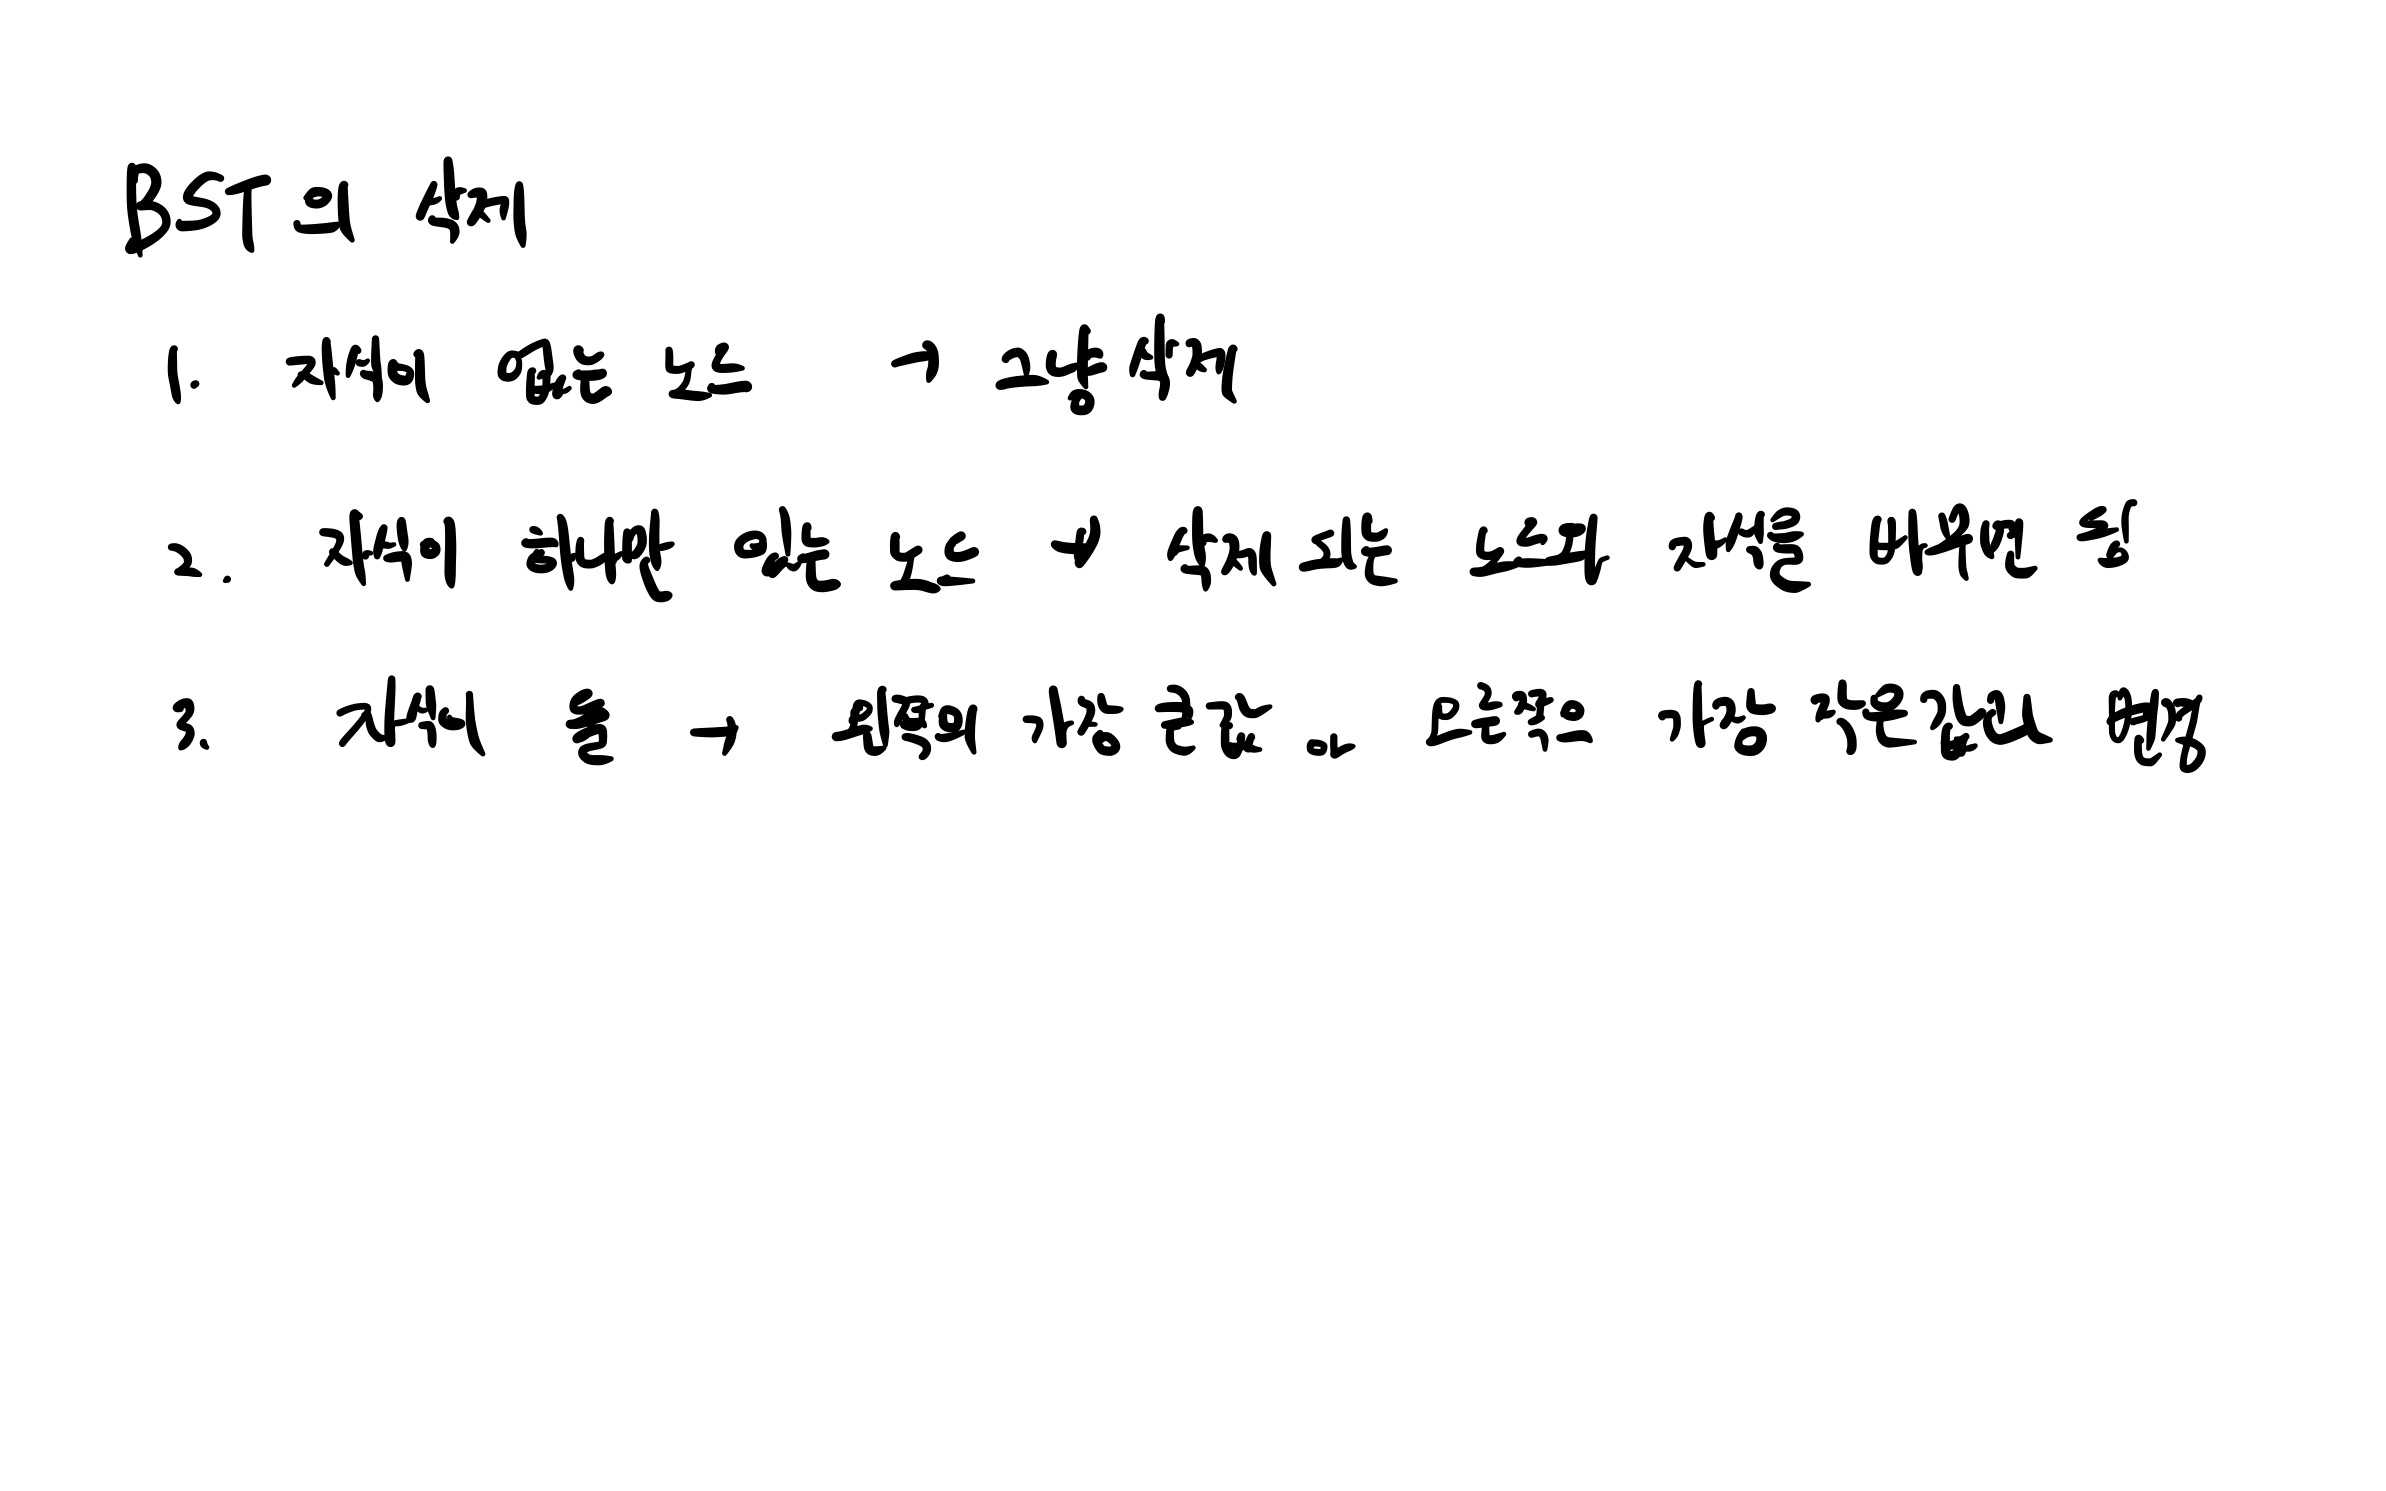 BST의 삭제
1. 자식이 없는 노드 → 그냥 삭제
2. 자식이 하나만 있는 노드 → 삭제 되는 노드의 자식을 바꾸면 됨
3. 자식이 둘 → 왼쪽의 가장 큰 값 or 오른쪽의 가장 작은 값으로 변경